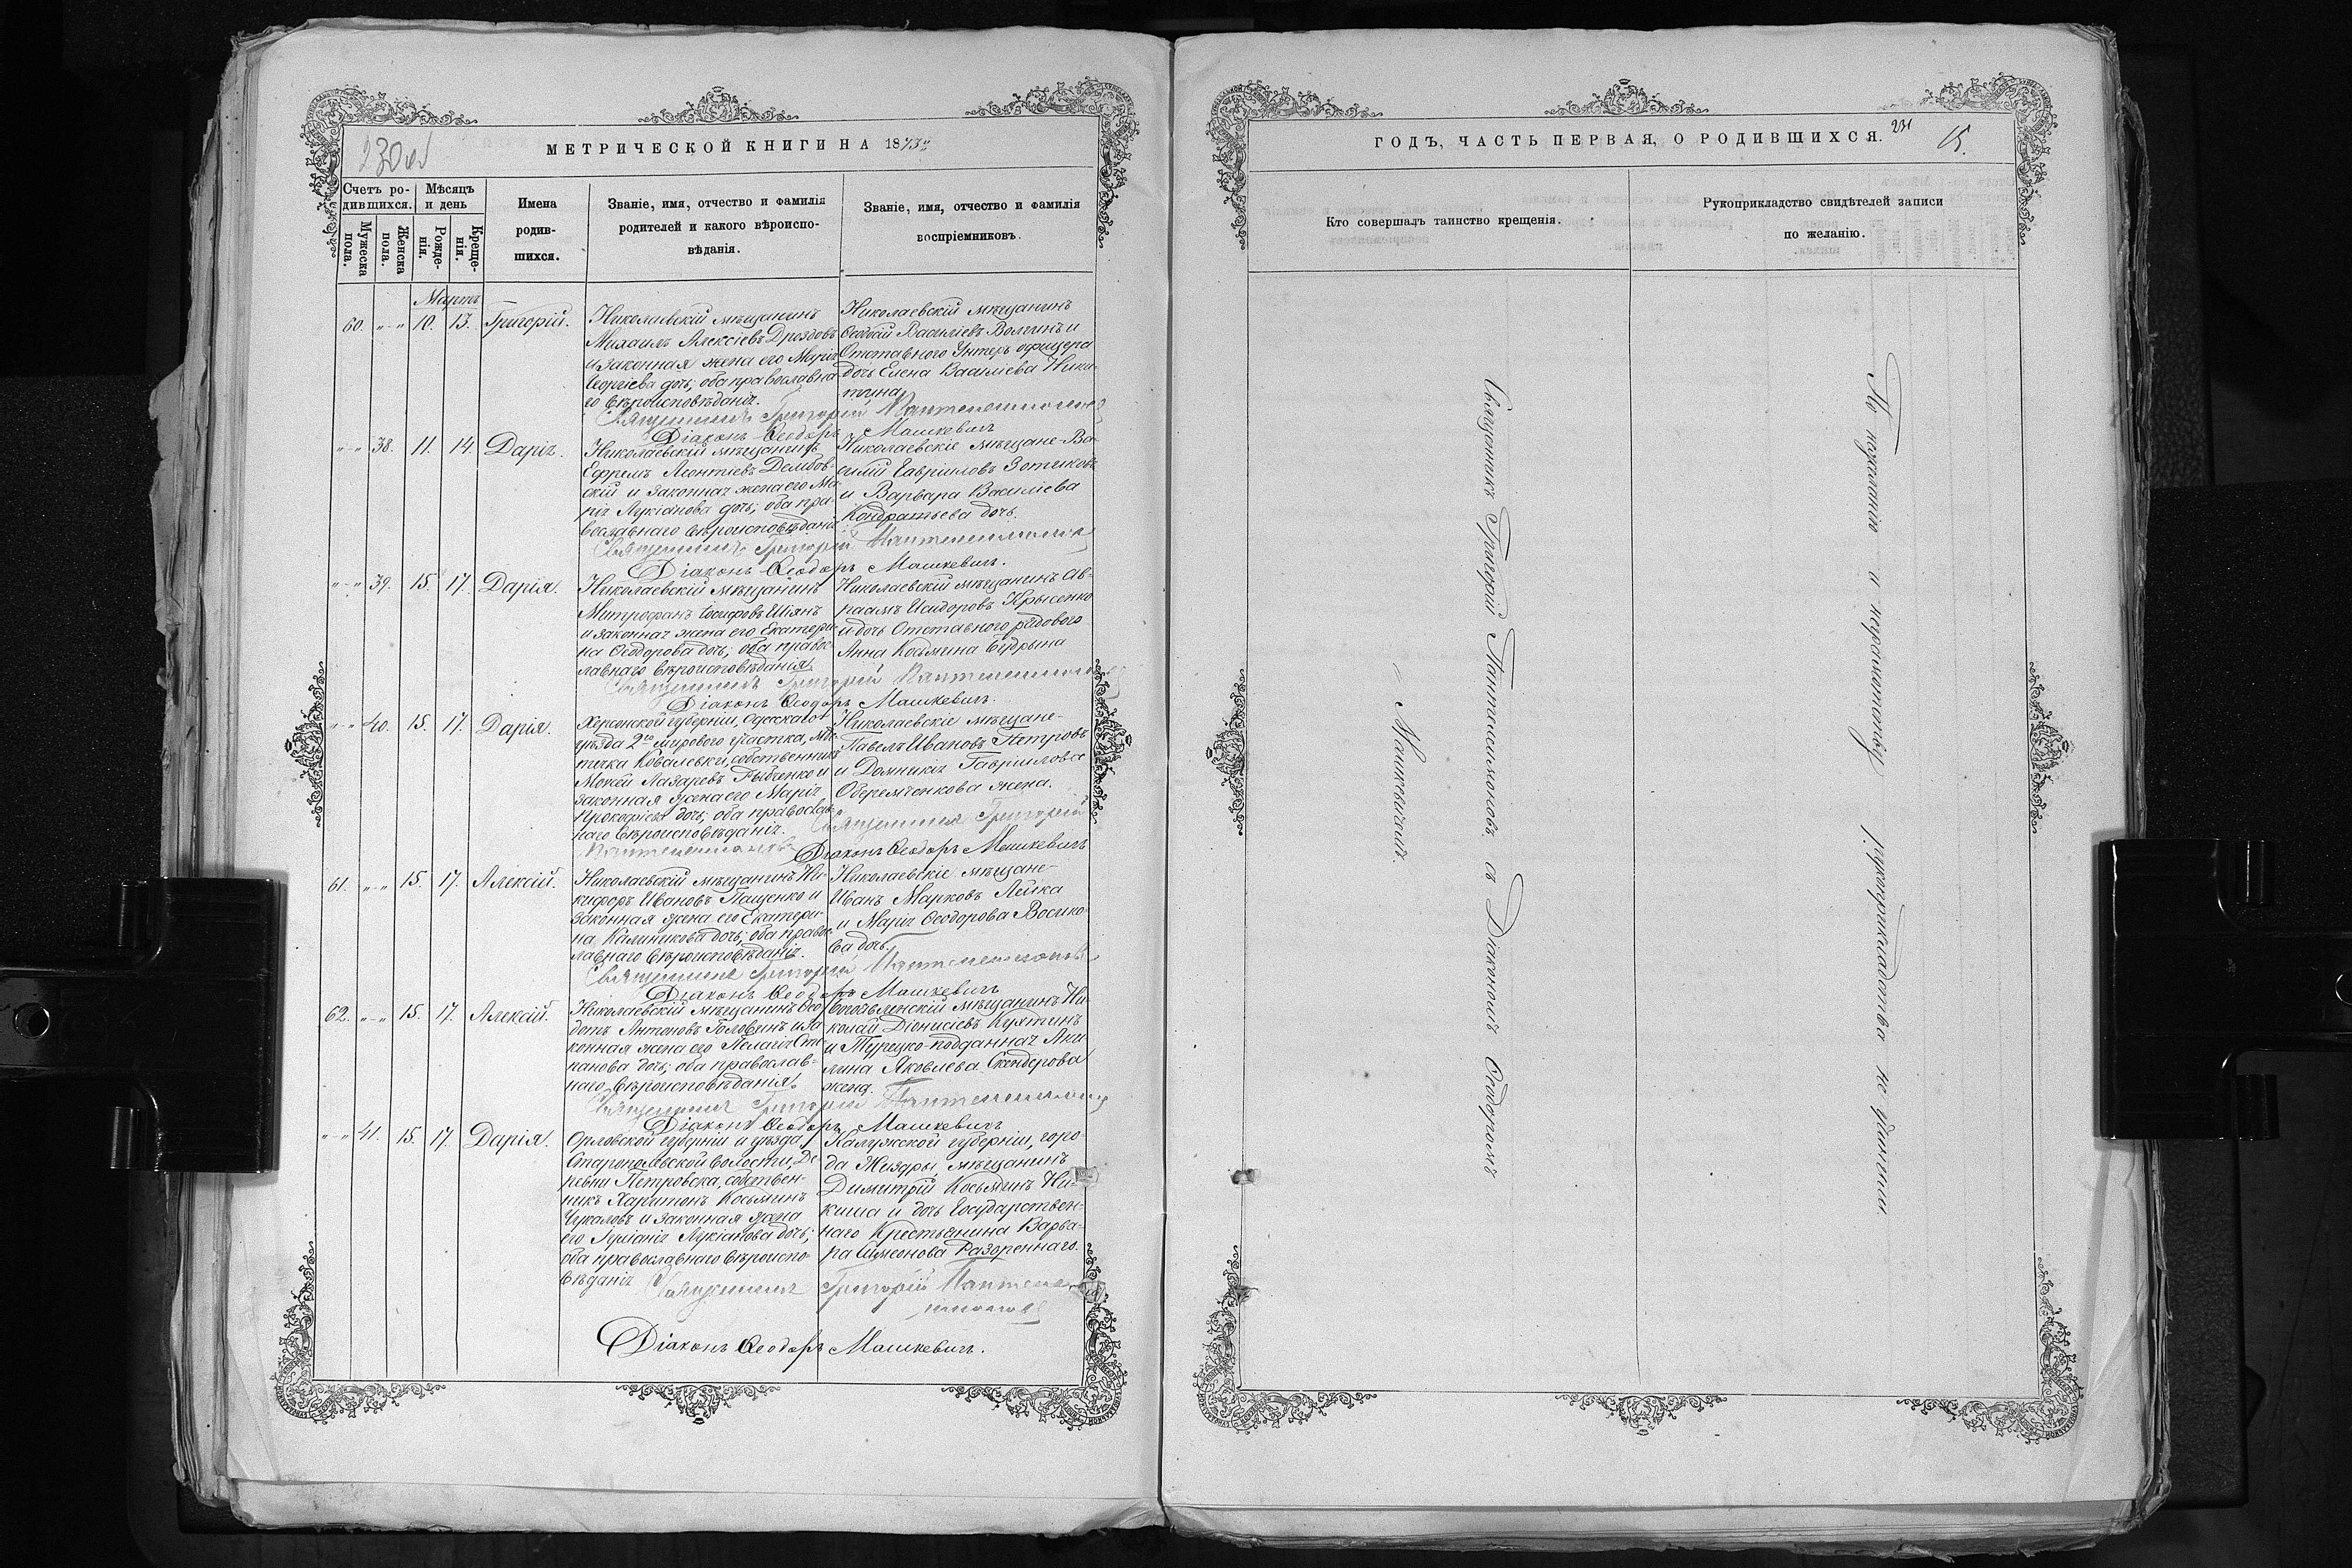 230об
МЕТРИЧЕСКОЙ КНИГИ НА 1873й
Счетъ ро-
дившихся.
Мѣсяцъ
и день
Мужеска
пола.
Женска
пола.
Рожде-
нія.
Креще-
нія.
Имена
родив-
шихся.
Званіе, имя, отчество и фамилія
родителей и какого вѣроиспо-
вѣданія.
Званіе, имя, отчество и фамилія
воспріемниковъ.
Мартъ
60. "-" 10. 13. Григорій.
Николаевскій мѣщанинъ
Михаилъ Алексіевъ Дроздовъ
и законная жена его Марія
Георгіева дочь; оба православна-
го вѣроисповѣданія.
Николаевскій мѣщанинъ
Василіевъ и
Отставного Унтеръ офицера
дочь Елена Василіева Ники-
тина
Священникъ Григорій Пантелеимоновъ
Діаконъ Ѳеодоръ Машкевичъ
"-" 38. 11. 14. Дарія.
Николаевскій мѣщанинъ
Ефремъ Леонтіевъ Дембов-
скій и законная жена его Ма-
рія Лукіанова дочь; оба пра-
вославнаго вѣроисповѣданія
Николаевскіе мѣщане-Ва-
силій Гавріиловъ Зотиковъ
и Варвара Василіева
Кондратьева дочь.
Священникъ Григорій Пантелеимоновъ
Діаконъ Ѳеодоръ Машкевичъ.
"-" 39. 15. 17. Дарія.
Николаевскій мѣщанинъ
Митрофанъ Іосифовъ
и законная жена его Екатери-
на Ѳеодорова дочь; оба правос-
лавнаго вѣроисповѣданія.
Николаевскій мѣщанинъ Ав-
раамъ Исидоровъ Крысенко
и дочь Отставного рядового
Анна Косьмина
Священникъ Григорій Пантелеимоновъ
Діаконъ Ѳеодоръ Машкевичъ.
"-" 40. 15. 17. Дарія.
Херсонской губерніи, Одесскаго
уѣзда 2го мирового участка, мѣс-
течка Ковалевки, собственникъ
Мокей Лазаревъ Рыбченко и
законная жена его Марія
Прокофіева дочь; оба православ-
наго вѣроисповѣданія.
Николаевскіе мѣщане-
Павелъ Ивановъ Петровъ
и Домникія Гавріилова
Оберемченкова жена.
Священникъ Григорій
Пантелеимоновъ
Діаконъ Ѳеодоръ Машкевичъ
61. "-" 15. 17. Алексій.
Николаевскій мѣщанинъ Ни-
кифоръ Ивановъ Пащенко и
законная жена его Екатери-
на Калиникова дочь; оба право-
славнаго вѣроисповѣданія.
Николаевскіе мѣщане-
Иванъ Марковъ Лейка
и Марія Ѳеодорова
ва дочь.
Священникъ Григорій Пантелеимоновъ
Діаконъ Ѳеодоръ Машкевичъ
62. "-" 15. 17. Алексій.
Николаевскій мѣщанинъ Ѳео-
дотъ Антоновъ Головинъ и за-
конная жена его Пелагія Сте-
панова дочь; оба православ-
наго вѣроисповѣданія.
мѣщанинъ Ни-
колай Діонисіевъ
и Турецко-подданная Аки-
лина Яковлева Скендерова
жена.
Священникъ Григорій Пантелеимоновъ
Діаконъ Ѳеодоръ Машкевичъ
"-" 41. 15. 17. Дарія.
Орловской губерніи и уѣзда,
волости, Де-
ревни Петровска, собствен-
никъ Харитонъ Косьминъ
Чукаловъ и законная жена
его Іуліанія Лукіанова дочь;
оба православнаго вѣроиспо-
вѣданія
Калужской губерніи, горо-
да Жиздры, мѣщанинъ
Димитрій Косьминъ Ни-
киша и дочь Государствен-
наго Крестьянина Варва-
ра Симеонова Разореннаго.
Священникъ Григорій Пантелеи-
моновъ
Діаконъ Ѳеодоръ Машкевичъ.
ГОДЪ, ЧАСТЬ ПЕРВАЯ, О РОДИВШИХСЯ.
231
15.
Кто совершалъ таинство крещенія.
Рукоприкладство свидѣтелей записи
по желанію.
Священникъ Григорій Пантелеимоновъ съ Діакономъ Ѳеодоромъ
Машкевичемъ.
По нежеланію и неграмотству рукоприкладства не учинили.